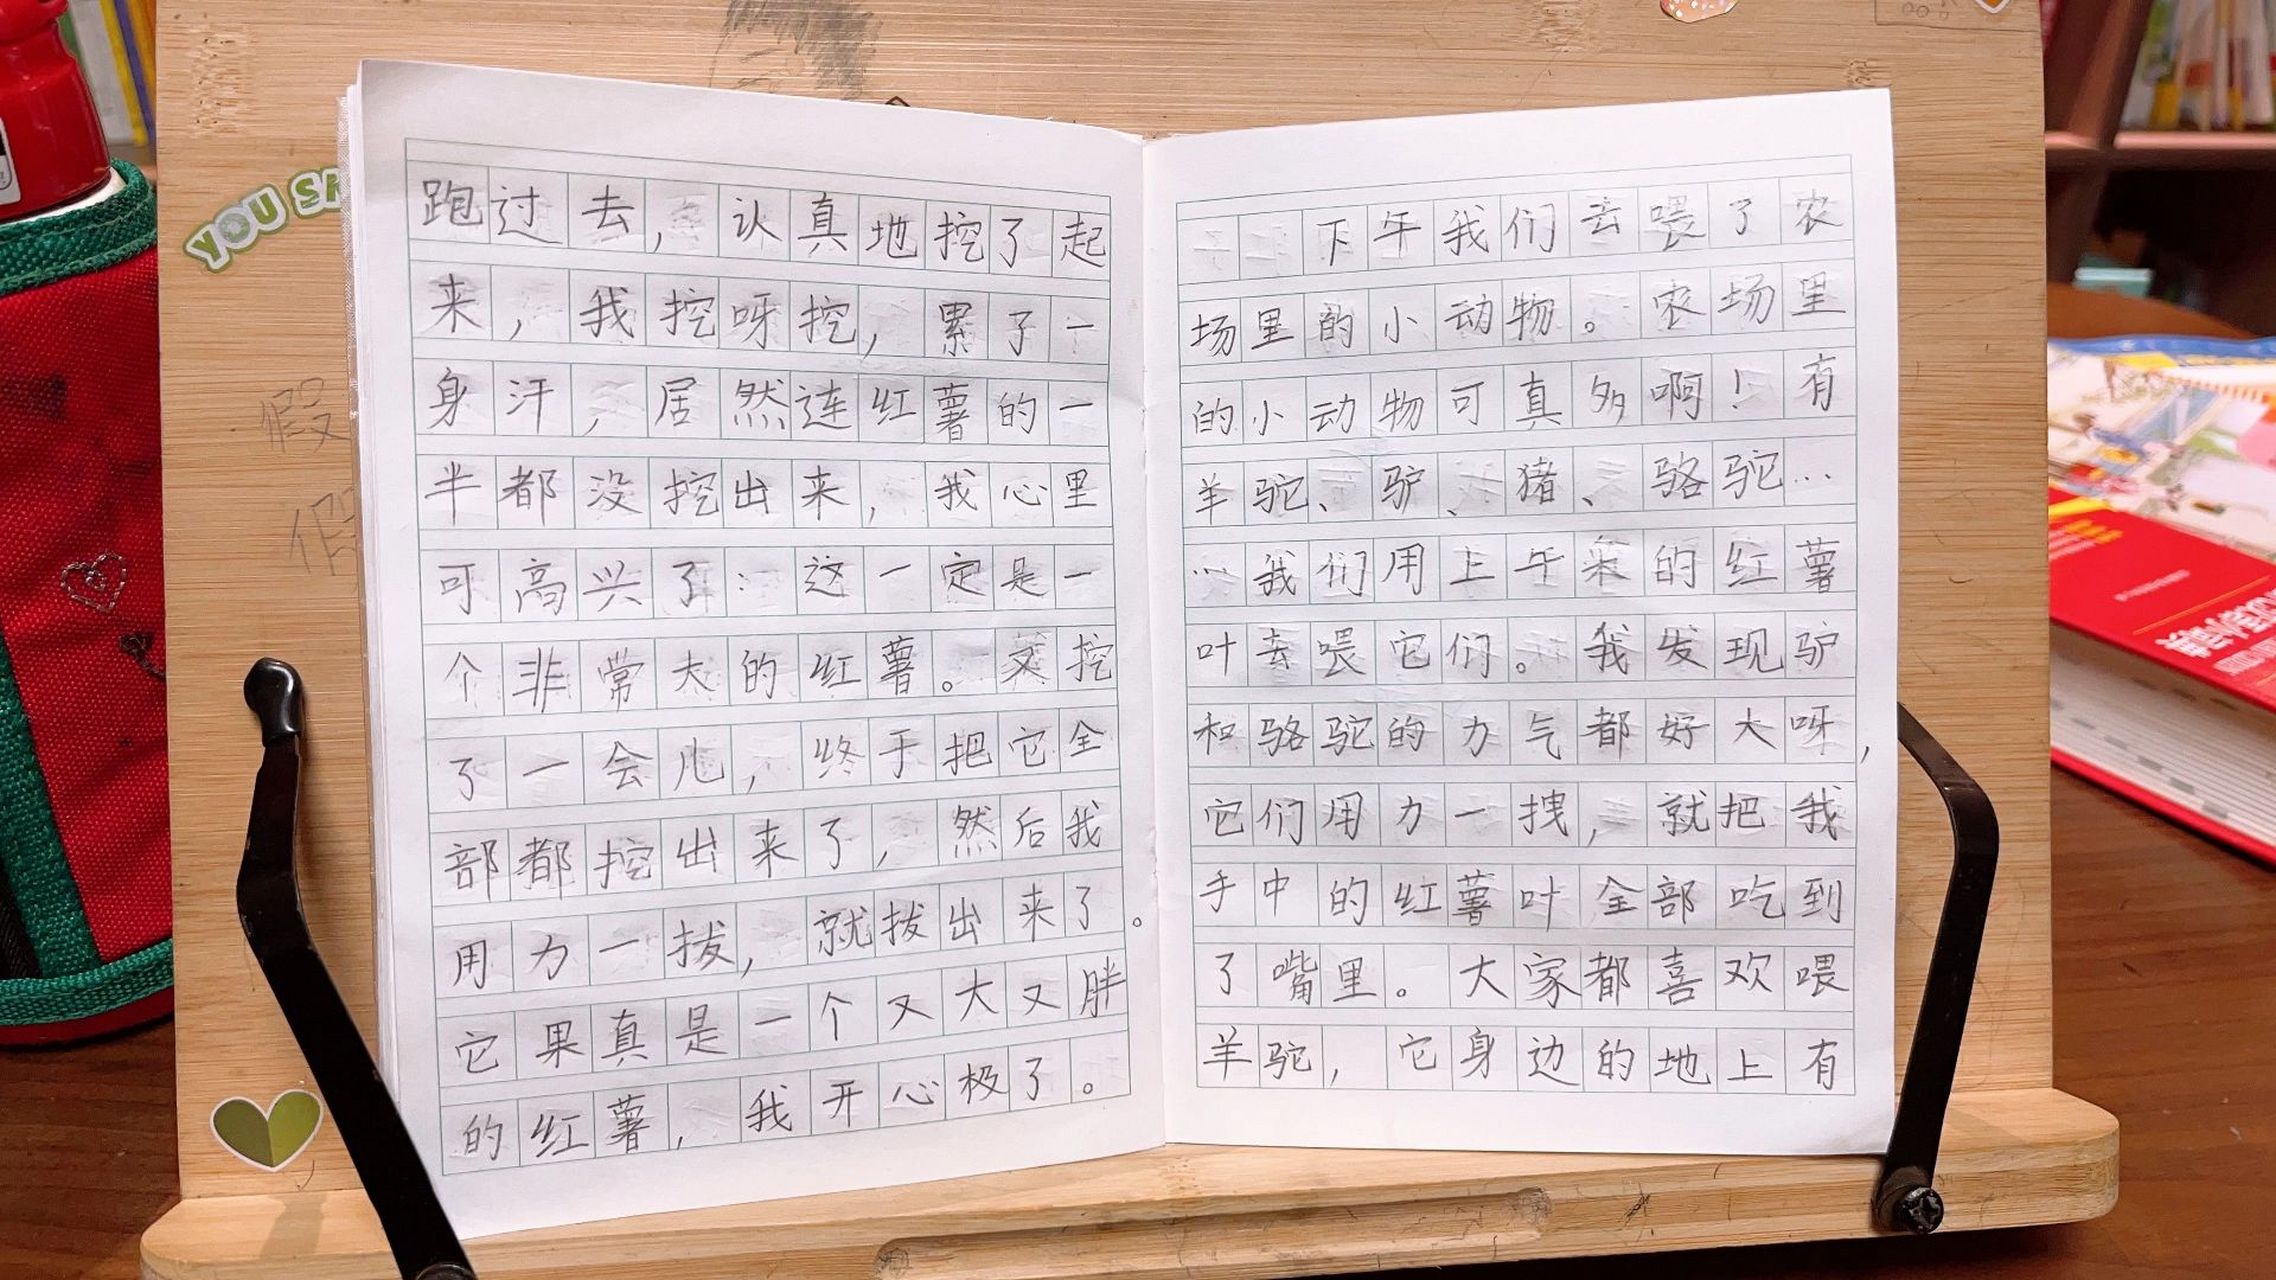 YOU
假
跑过去，认真地挖了起
来，我挖呀挖，累了一
身汗，居然连红薯的一
半都没挖出来，我心里
可高兴了：这一定是一
个非常大的红薯。又挖
了一会儿，终于把它全
部都挖出来了，然后我
用力一拔，就拔出来了。
它果真是一个又大又胖
的红薯，我开心极了。
下午我们去喂了农
场里的小动物。农场里
的小动物可真多啊！有
羊驼、驴、猪、骆驼…
…我们用上午采的红薯
叶去喂它们。我发现驴
和骆驼的力气都好大呀，
它们用力一拽，就把我
手中的红薯叶全部吃到
了嘴里。大家都喜欢喂
羊驼，它身边的地上有